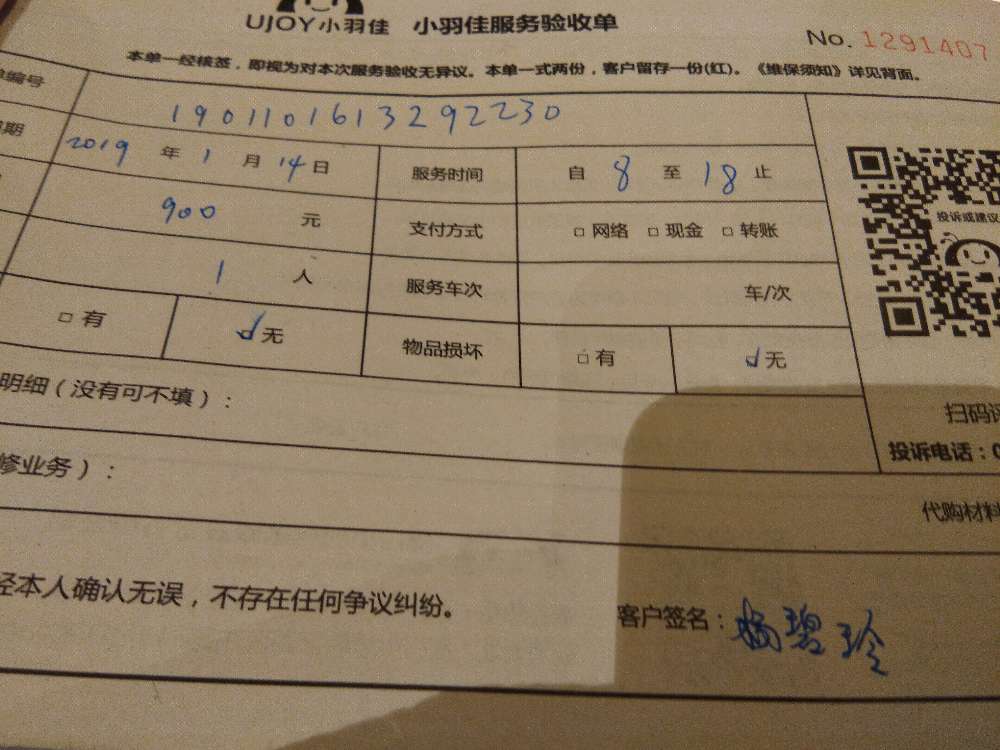 UJOY小羽佳 小羽佳服务验收单
No. 1291407
本单一经核签，即视为对本次服务验收无异议。本单一式两份，客户留存一份(红)。《维保须知》详见背面。
编号 1901101613292230
期 2019 年 1 月 14 日 服务时间 自 8 至 18 止
900 元 支付方式 □ 网络 □ 现金 □ 转账
投诉或建议
1 人 服务车次 车/次
□ 有 ☑ 无 物品损坏 □ 有 ☑ 无
明细（没有可不填）：
扫码
投诉电话：0
修业务）：
代购材料
经本人确认无误，不存在任何争议纠纷。
客户签名：杨碧玲